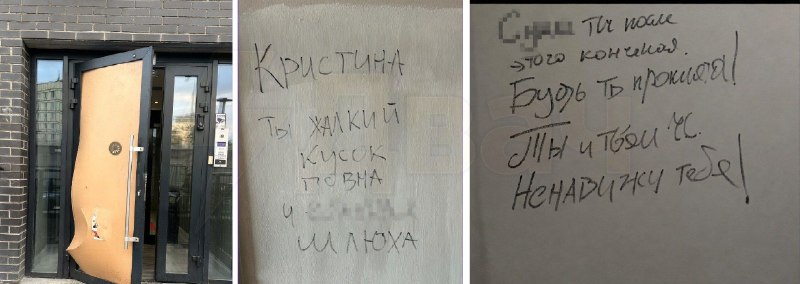 КРИСТИНА
ТЫ ЖАЛКИЙ
КУСОК
ГОВНА
И
ШЛЮХА
ты после
этого конченая.
Будь ты проклята!
Ты и твои
Ненавижу тебя!